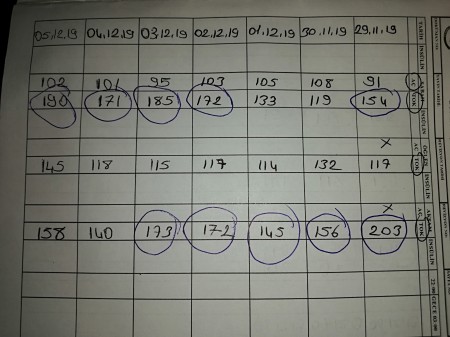 05.12.19 04.12.19 03.12.19 02.12.19 01.12.19 30.11.19 29.11.19 TARİH
İNSÜLİN
102 101 95 103 105 108 91 AÇ
190 171 185 172 133 119 154 TOK
İNSÜLİN
x AÇ
145 118 115 117 114 132 117 TOK
İNSÜLİN
x AÇ
158 140 173 172 145 156 203 TOK
İNSÜLİN
22:00 GECE 03:00